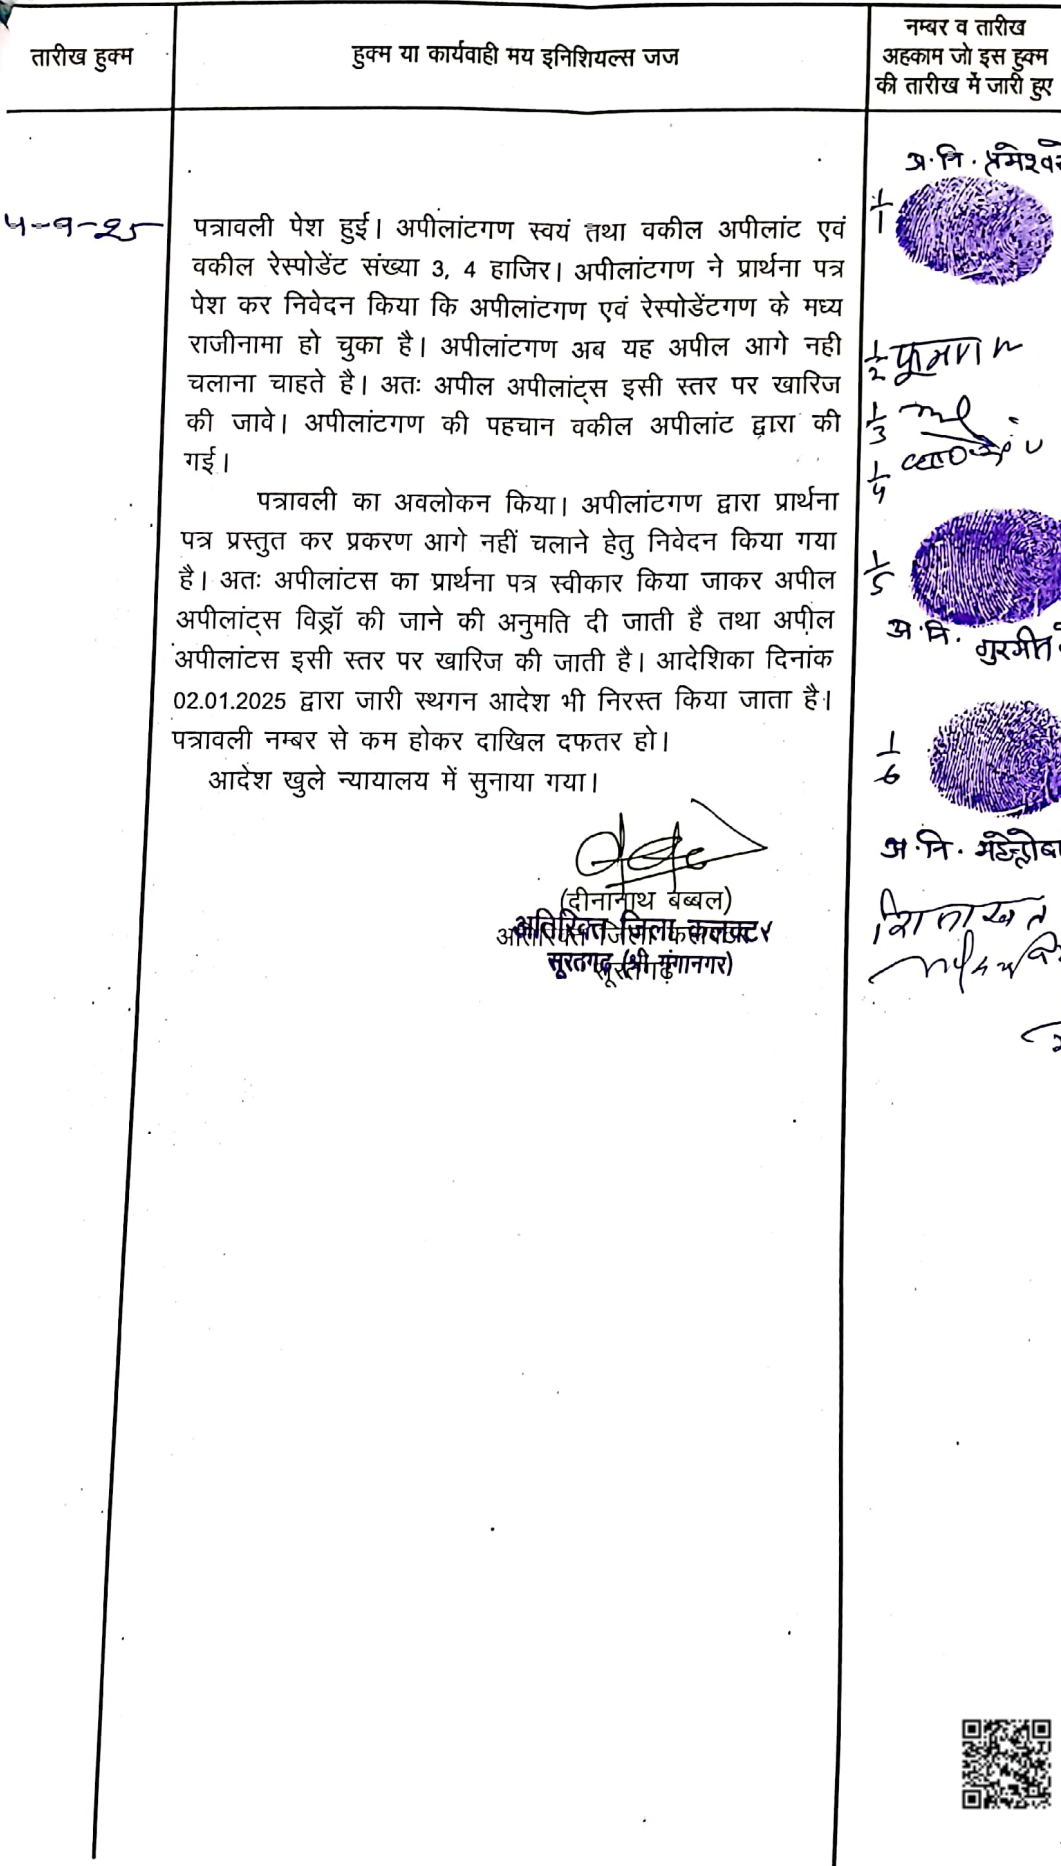 तारीख हुक्म
हुक्म या कार्यवाही मय इनिशियल्स जज
नम्बर व तारीख
अहकाम जो इस हुक्म
की तारीख में जारी हुए
4-9-25
पत्रावली पेश हुई। अपीलांटगण स्वयं तथा वकील अपीलांट एवं
वकील रेस्पोडेंट संख्या 3, 4 हाजिर। अपीलांटगण ने प्रार्थना पत्र
पेश कर निवेदन किया कि अपीलांटगण एवं रेस्पोडेंटगण के मध्य
राजीनामा हो चुका है। अपीलांटगण अब यह अपील आगे नही
चलाना चाहते है। अतः अपील अपीलांट्स इसी स्तर पर खारिज
की जावे। अपीलांटगण की पहचान वकील अपीलांट द्वारा की
गई।
पत्रावली का अवलोकन किया। अपीलांटगण द्वारा प्रार्थना
पत्र प्रस्तुत कर प्रकरण आगे नहीं चलाने हेतु निवेदन किया गया
है। अतः अपीलांटस का प्रार्थना पत्र स्वीकार किया जाकर अपील
अपीलांट्स विड्रॉ की जाने की अनुमति दी जाती है तथा अपील
अपीलांटस इसी स्तर पर खारिज की जाती है। आदेशिका दिनांक
02.01.2025 द्वारा जारी स्थगन आदेश भी निरस्त किया जाता है।
पत्रावली नम्बर से कम होकर दाखिल दफतर हो।
आदेश खुले न्यायालय में सुनाया गया।
(दीनानाथ बब्बल)
अतिरिक्त जिला कलक्टर
सूरतगढ़ (श्री गंगानगर)
अ.नि.
1/1
1/2
1/3
1/4
1/5
अ.नि. गुरमीत
1/6
अ.नि.